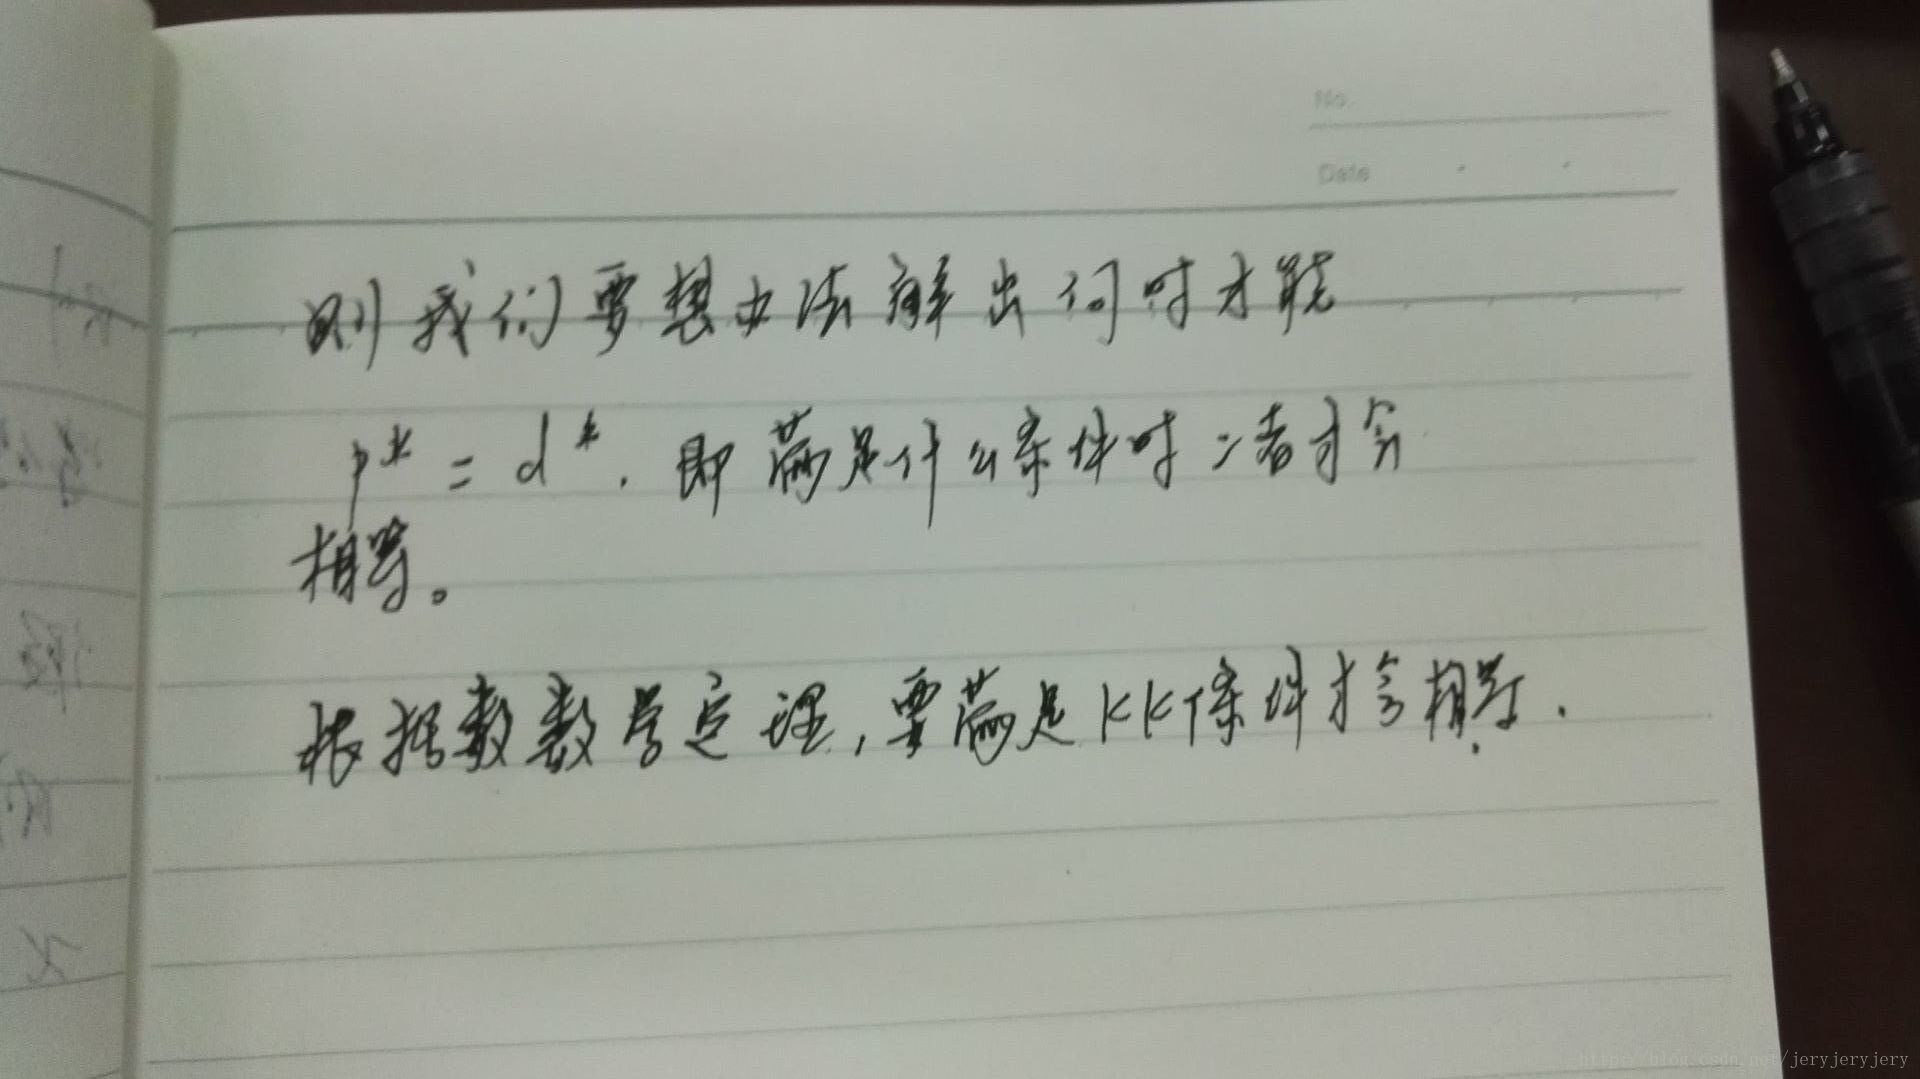 No.
Date
则我们要想办法解出何时才能
p* = d*. 即满足什么条件时二者才会
相等。
根据数数学定理,要满足KKT条件才会相等.
http://blog.csdn.net/jeryjeryjery